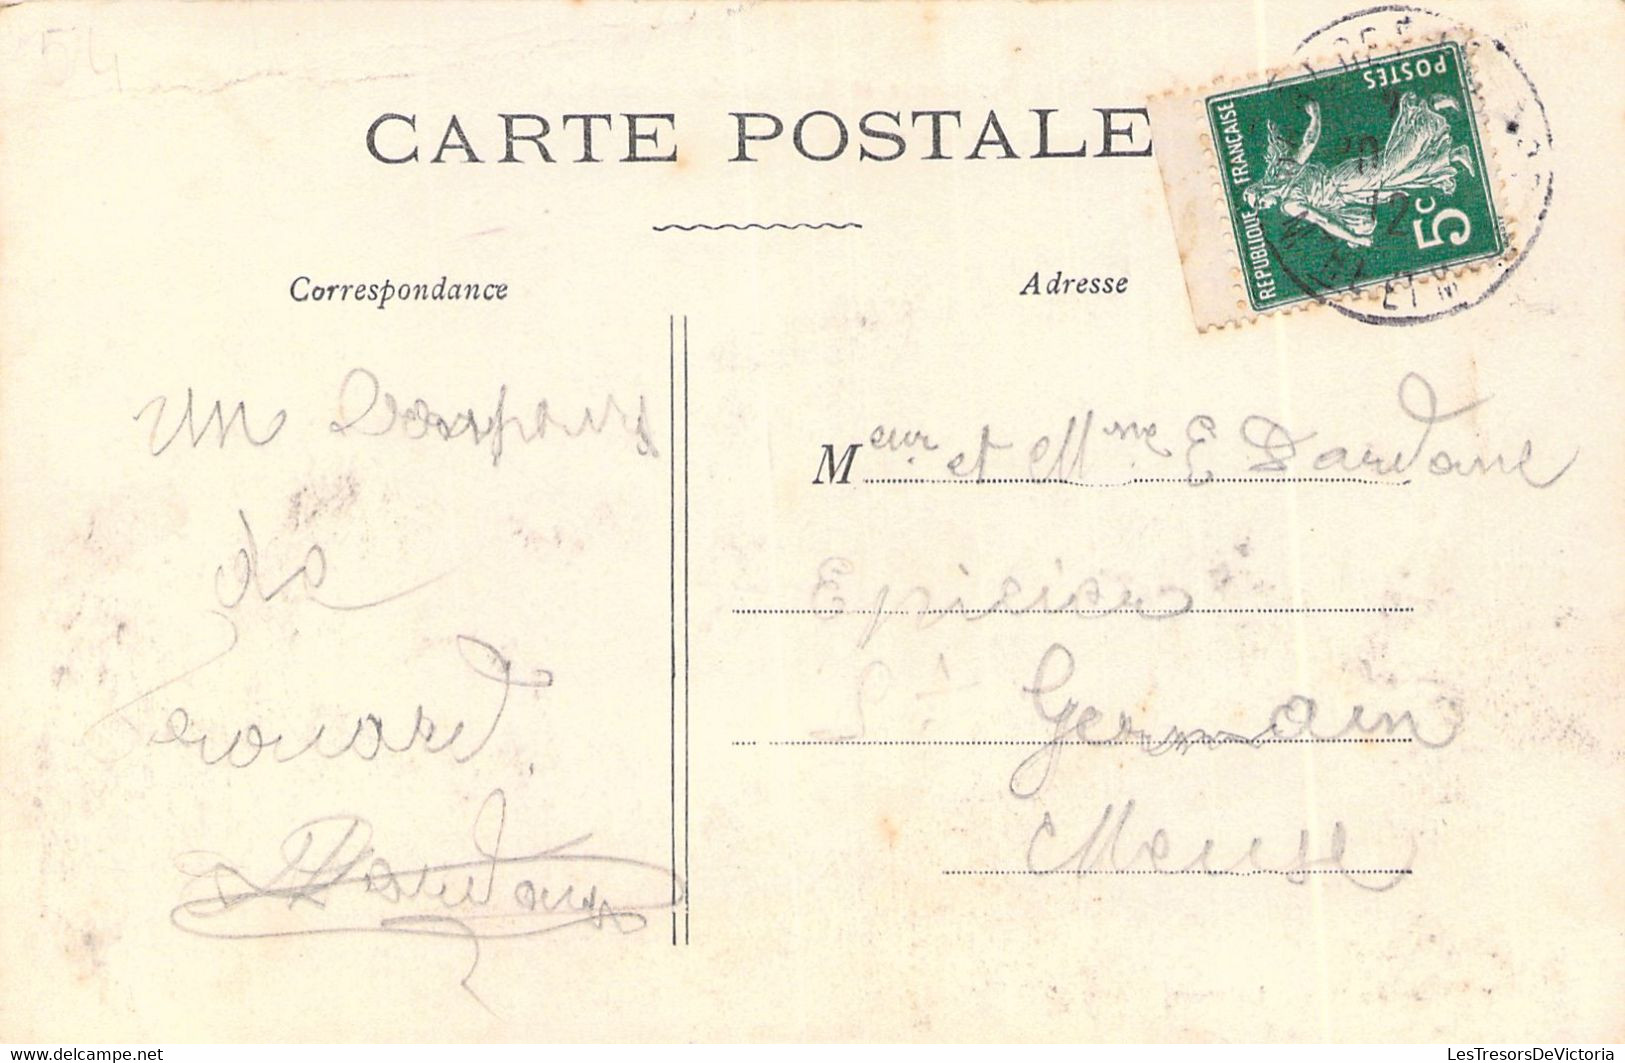 54
CARTE POSTALE
POSTES
REPUBLIQUE FRANÇAISE
5c
Correspondance
Adresse
un
de
Edouard
Dardane
Meur et Mme E Dardane
Epicier
St Germain
Meuse
LesTresorsDeVictoria